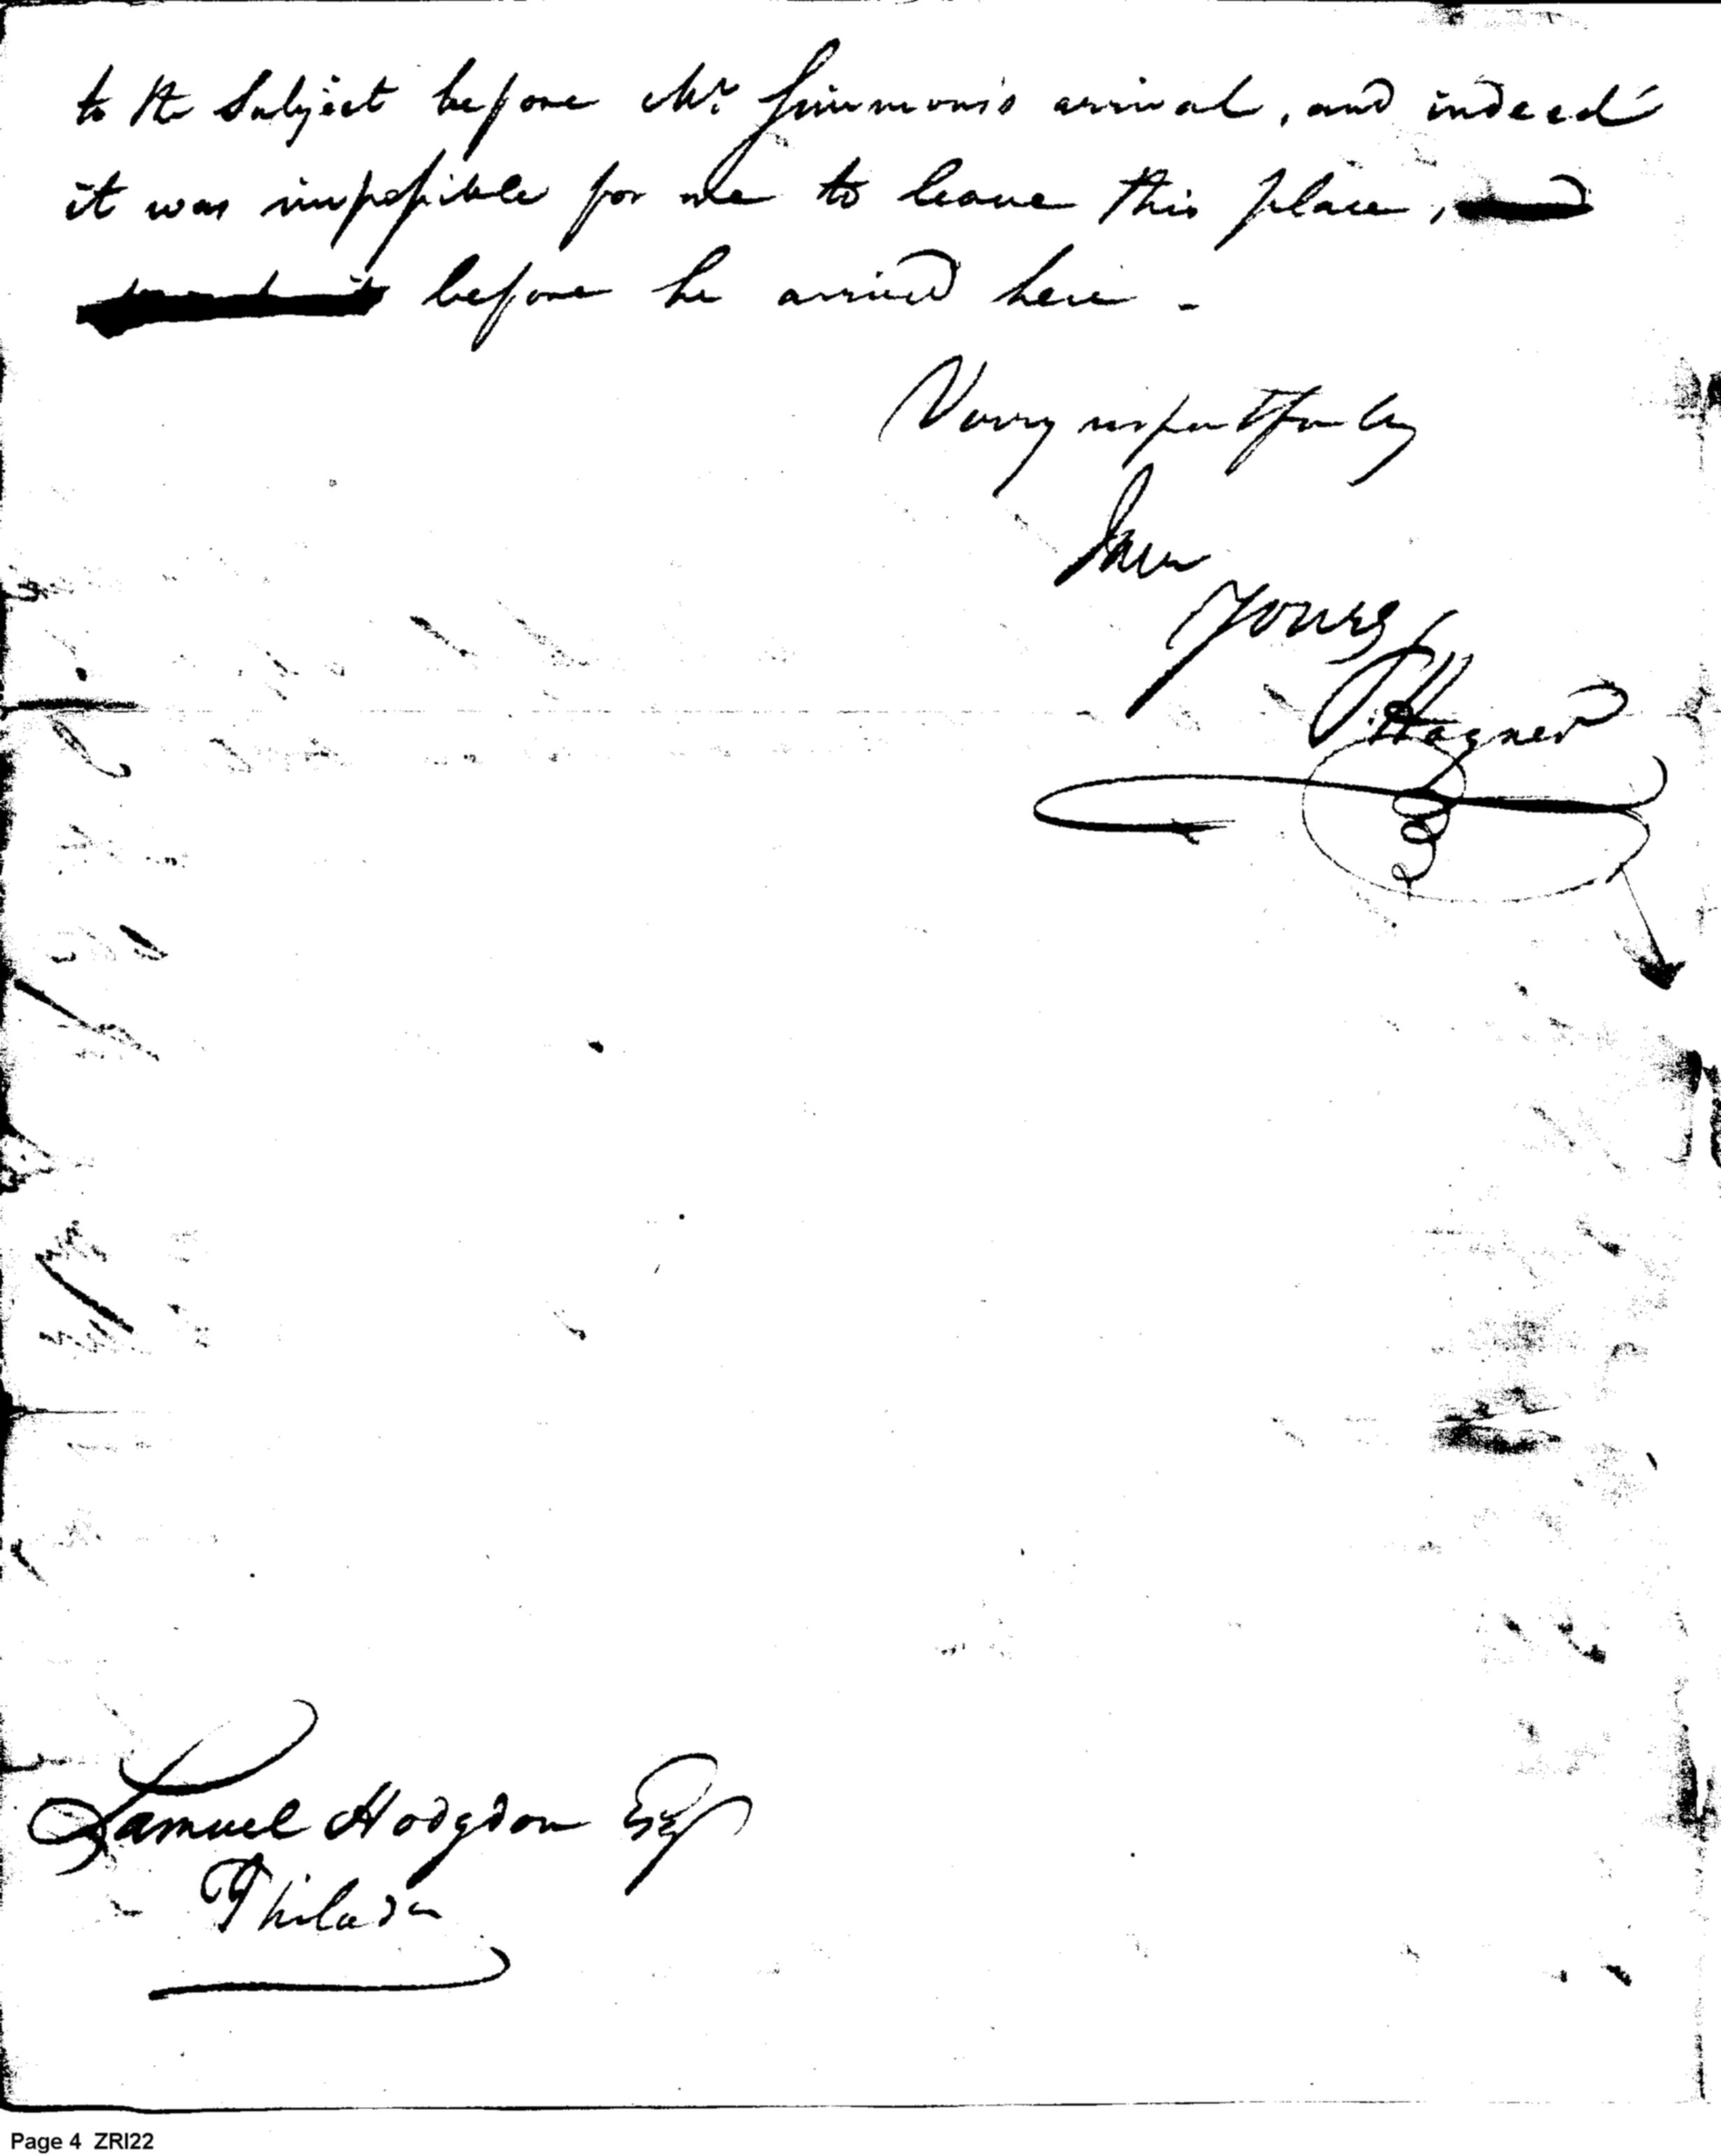 to the Subject before Mr Simmons's arrival, and indeed
it was impossible for me to leave this place,
before he arrived here -
Very respectfully
I am
Yours
P. Hagner
Samuel Hodgdon Esqr
Philada
Page 4 ZRI22